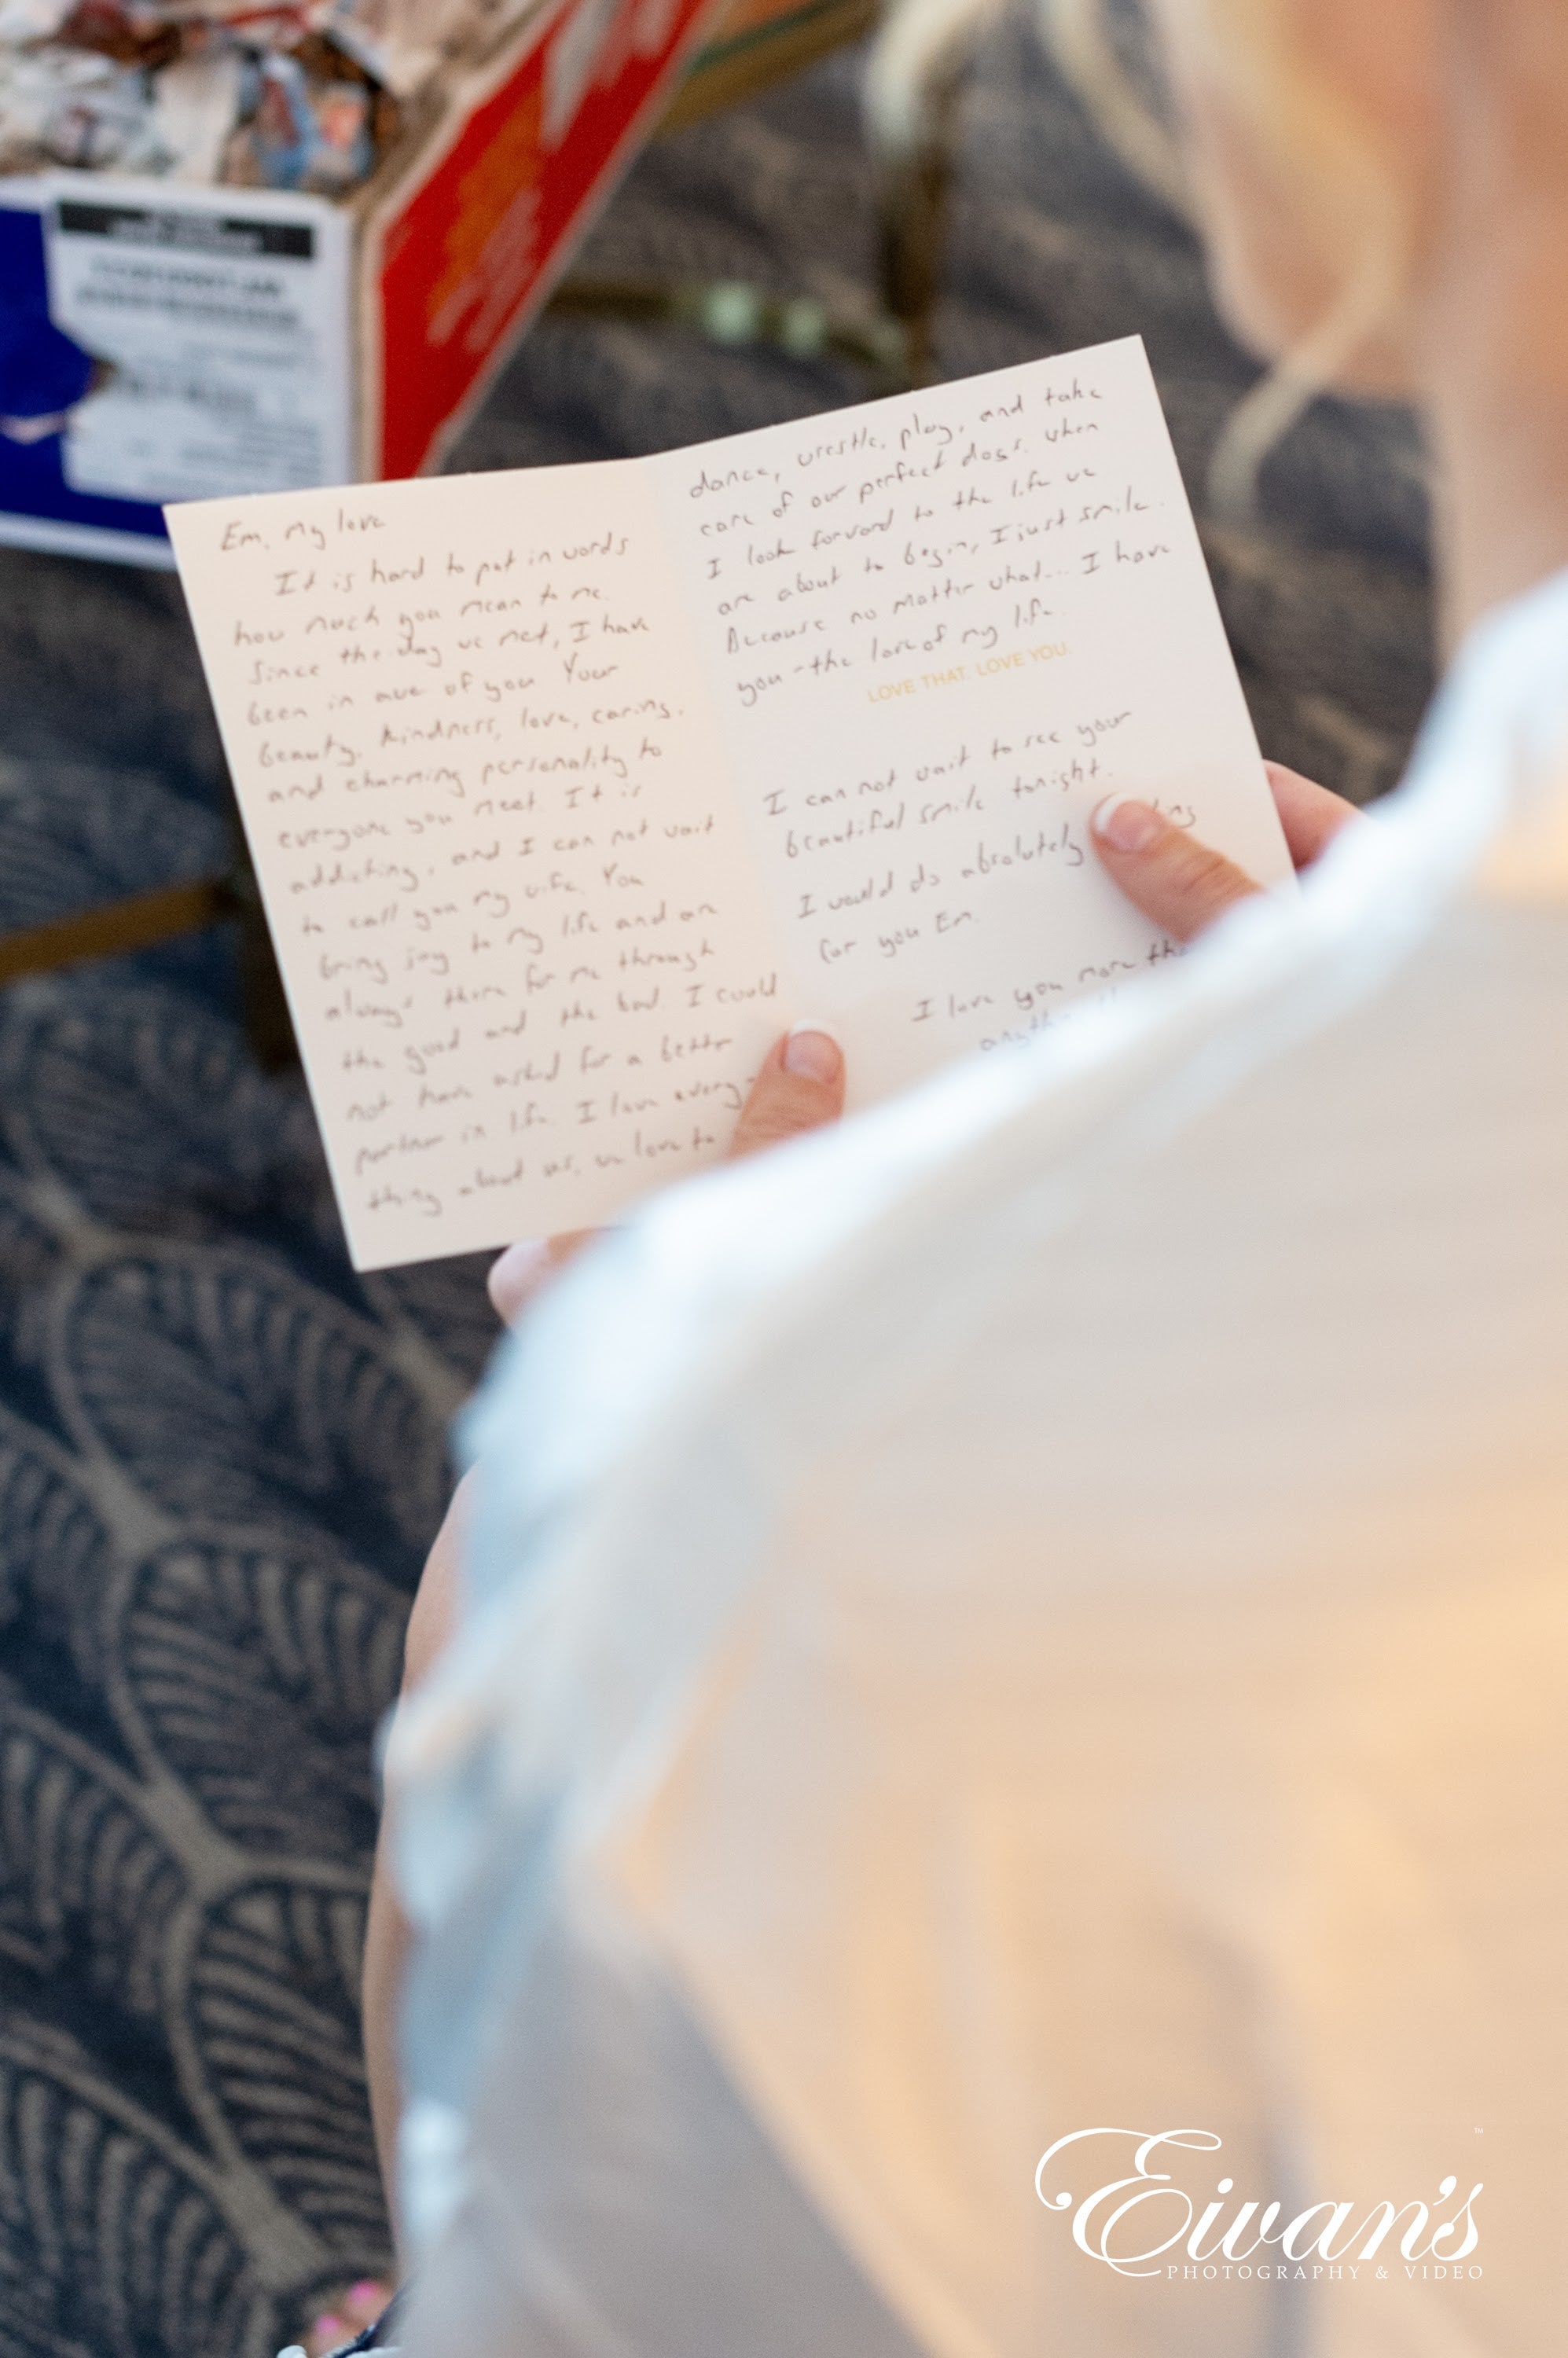 Em, my love
It is hard to put in words
how much you mean to me.
Since the day we met, I have
been in awe of you Your
beauty, kindness, love, caring,
and charming personality to
everyone you meet. It is
addicting, and I can not wait
to call you my wife. You
bring joy to my life and are
always there for me through
the good and the bad. I could
not have asked for a better
partner in life. I love every-
thing about us, we love to
dance, wrestle, play, and take
care of our perfect dogs. When
I look forward to the life we
are about to begin, I just smile.
Because no matter what... I have
you - the love of my life.
LOVE THAT. LOVE YOU.
I can not wait to see your
beautiful smile tonight.
I would do absolutely
for you Em.
I love you more
Eivan's
PHOTOGRAPHY & VIDEO
TM